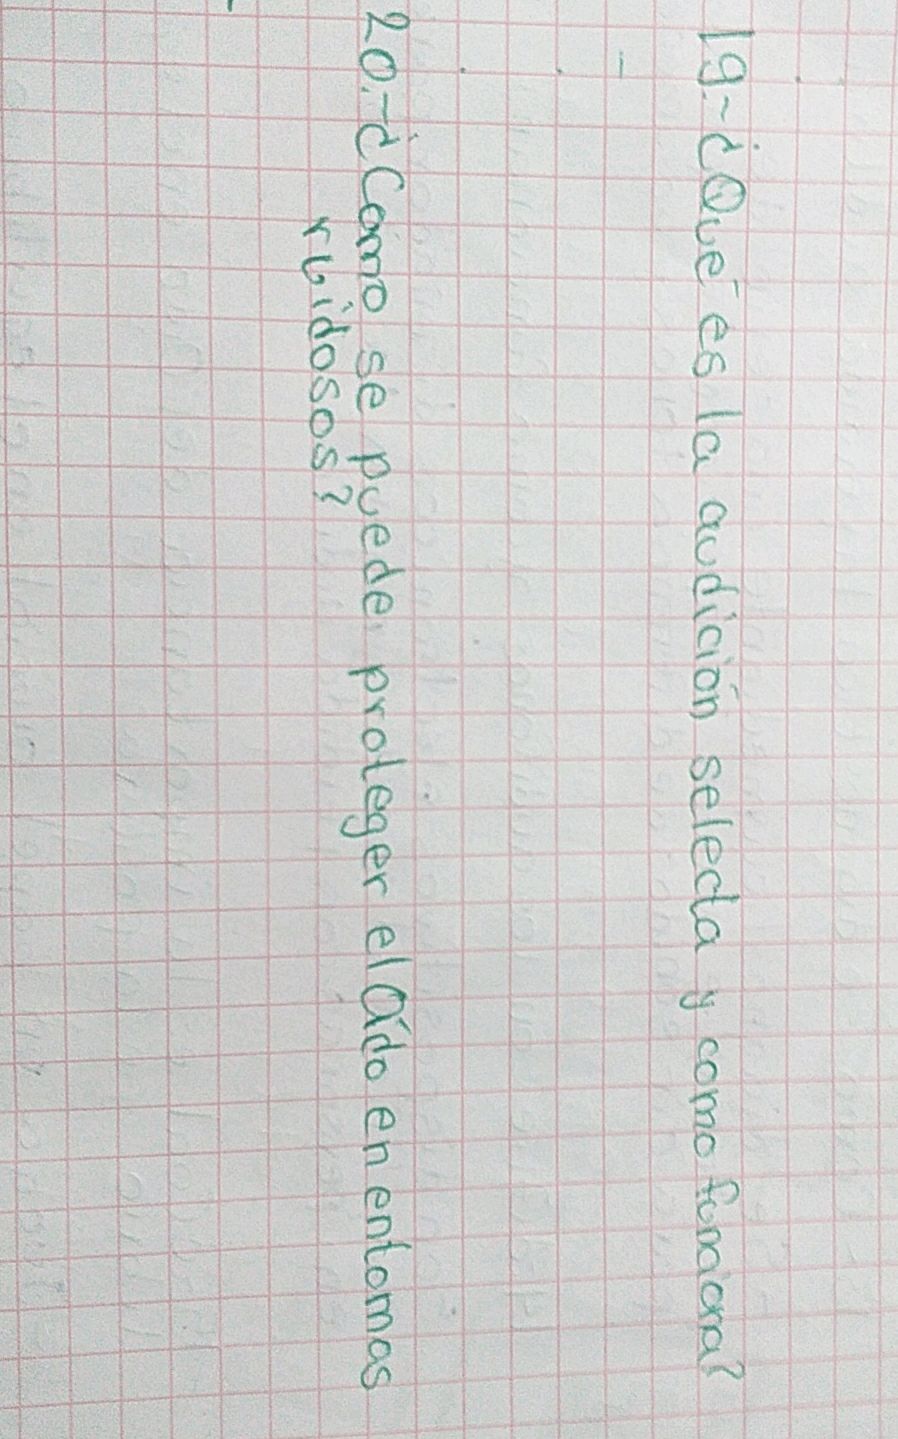 19.-¿Qué es la audición selecta y como funciona?
-
20.-¿Como se puede proteger el Oído en entornos
ruidosos?